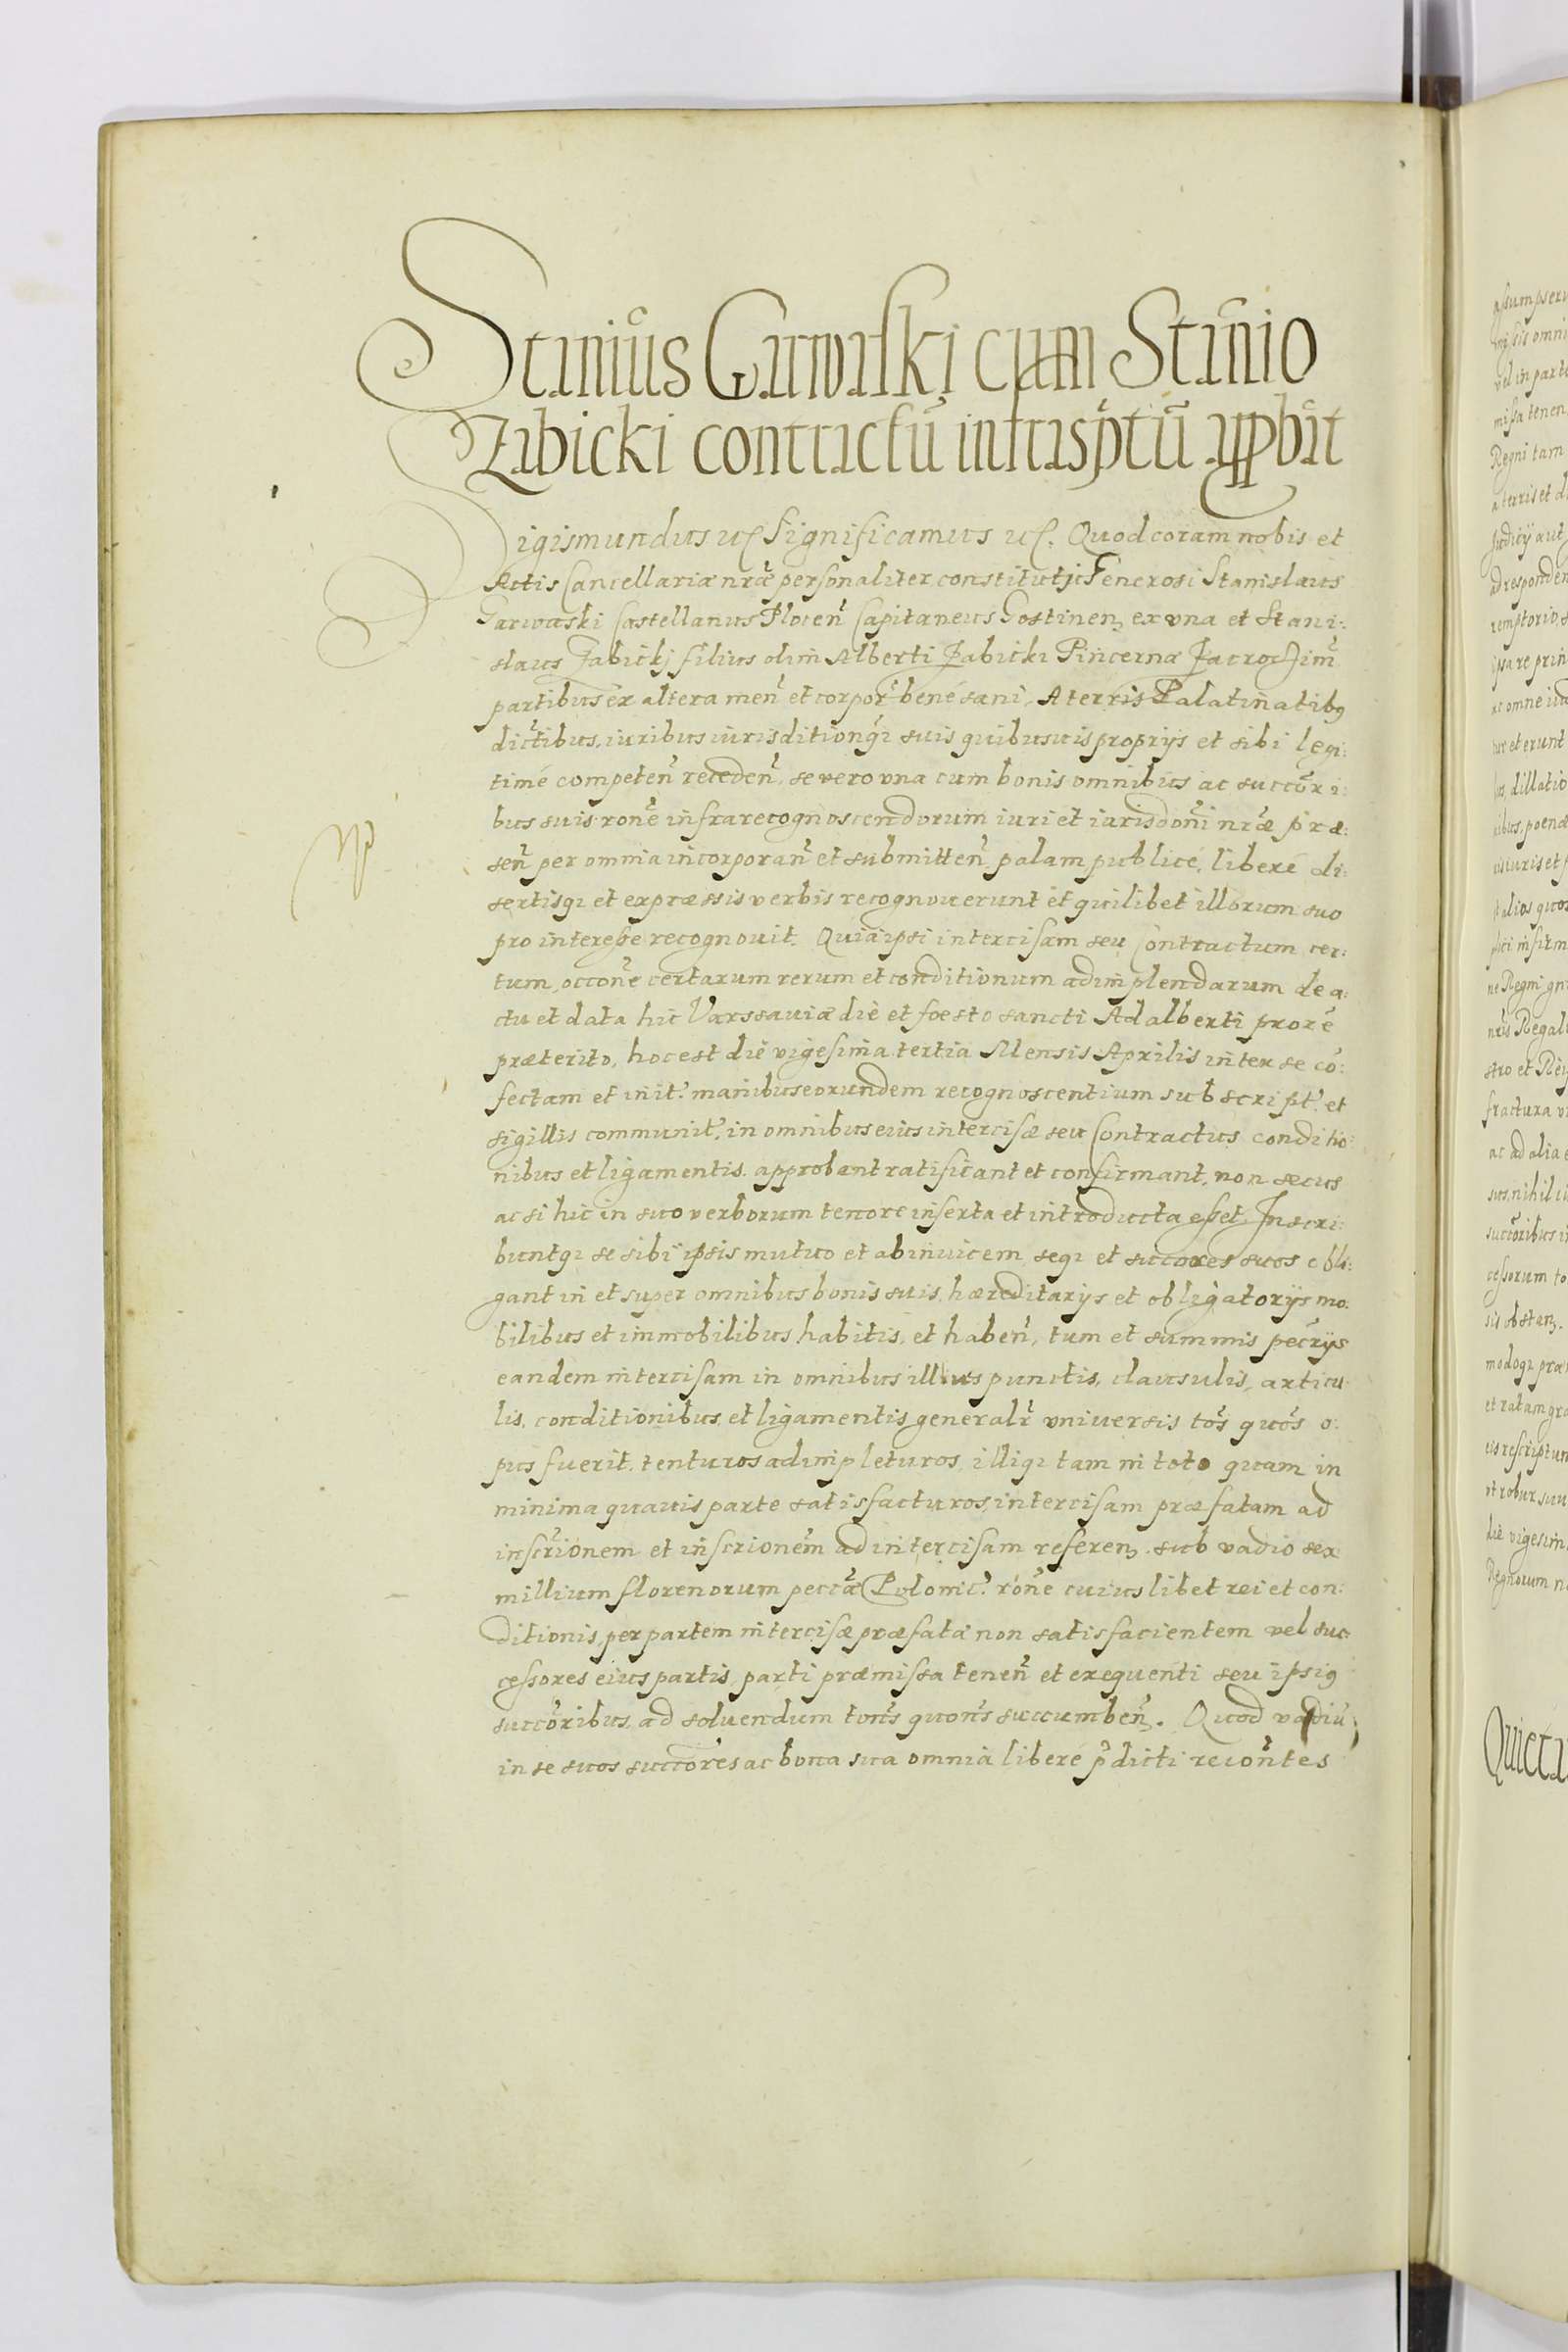 Stanius Garwaski cum Stanio
Zabicki contractū infrascrptū appbāt
Sigismundus etc Significamus etc. Quod coram nobis et
Actis Cancellariæ nrae personaliter constituti Generosi Stanislaus
Garwaski Castellanus Plocen Capitaneus Gostinen ex vna et Stani:
slaus Zabickj filius olim Alberti Zabicki Pincernæ
partibus ex altera men et corpor bene sani, A terris Palatinatibus
dictibus, iuribus iurisditionqz suis quibusuis proprijs et sibi legi:
time competen receden, se vero vna cum bonis omnibus ac succori:
bus suis rone infrarecognoscendorum iuri et iurisdoni nrae præ:
sen per omnia incorporan et submitten palam publice, libere di:
sertisqz et expræssis verbis recognouerunt et quilibet illorum suo
pro interesse recognouit. Quia ipsi intercisam seu Contractum cer:
tum, occone certarum rerum et conditionum adimplendarum de a:
ctu et data hic Varssauiæ die et foesto sancti Adalberti proxe
præterito, hoc est die vigesima tertia Mensis Aprilis inter se cō:
fectam et init. manibus eorundem recognoscentium subscript. et
sigillis communit, in omnibus eius intercisæ seu Contractus conditio:
nibus et ligamentis. approbant ratificant et confirmant, non secus
ac si hic in suo verborum tenore inserta et introducta esset. Inscri:
buntqz se sibi ipsis mutuo et abinuicem seqz et succores suos obli:
gant in et super omnibus bonis suis, hæreditarijs et obligatorijs mo:
bilibus et immobilibus, habitis, et haben, tum et summis pecrijs
eandem intercisam in omnibus illius punctis, clausulis, articu
lis, conditionibus, et ligamentis generalr vniuersis tos quos o:
pus fuerit, tenturos adimpleturos, illiqz tam in toto quam in
minima quauis parte satisfacturos, intercisam præfatam ad
inscrionem et inscrionem ad intercisam referenz. sub vadio sex
millium florenorum peccae Polonic. rone cuius libet rei et con:
ditionis, per partem intercisæ præfatæ non satisfacientem vel suc:
cessores eius partis, parti præmissa tenen et exequenti seu ipsius
succoribus, ad soluendum tons quons succumben. Quod vadiū
in se suos succores ac bona sua omnia libere pdicti recontes